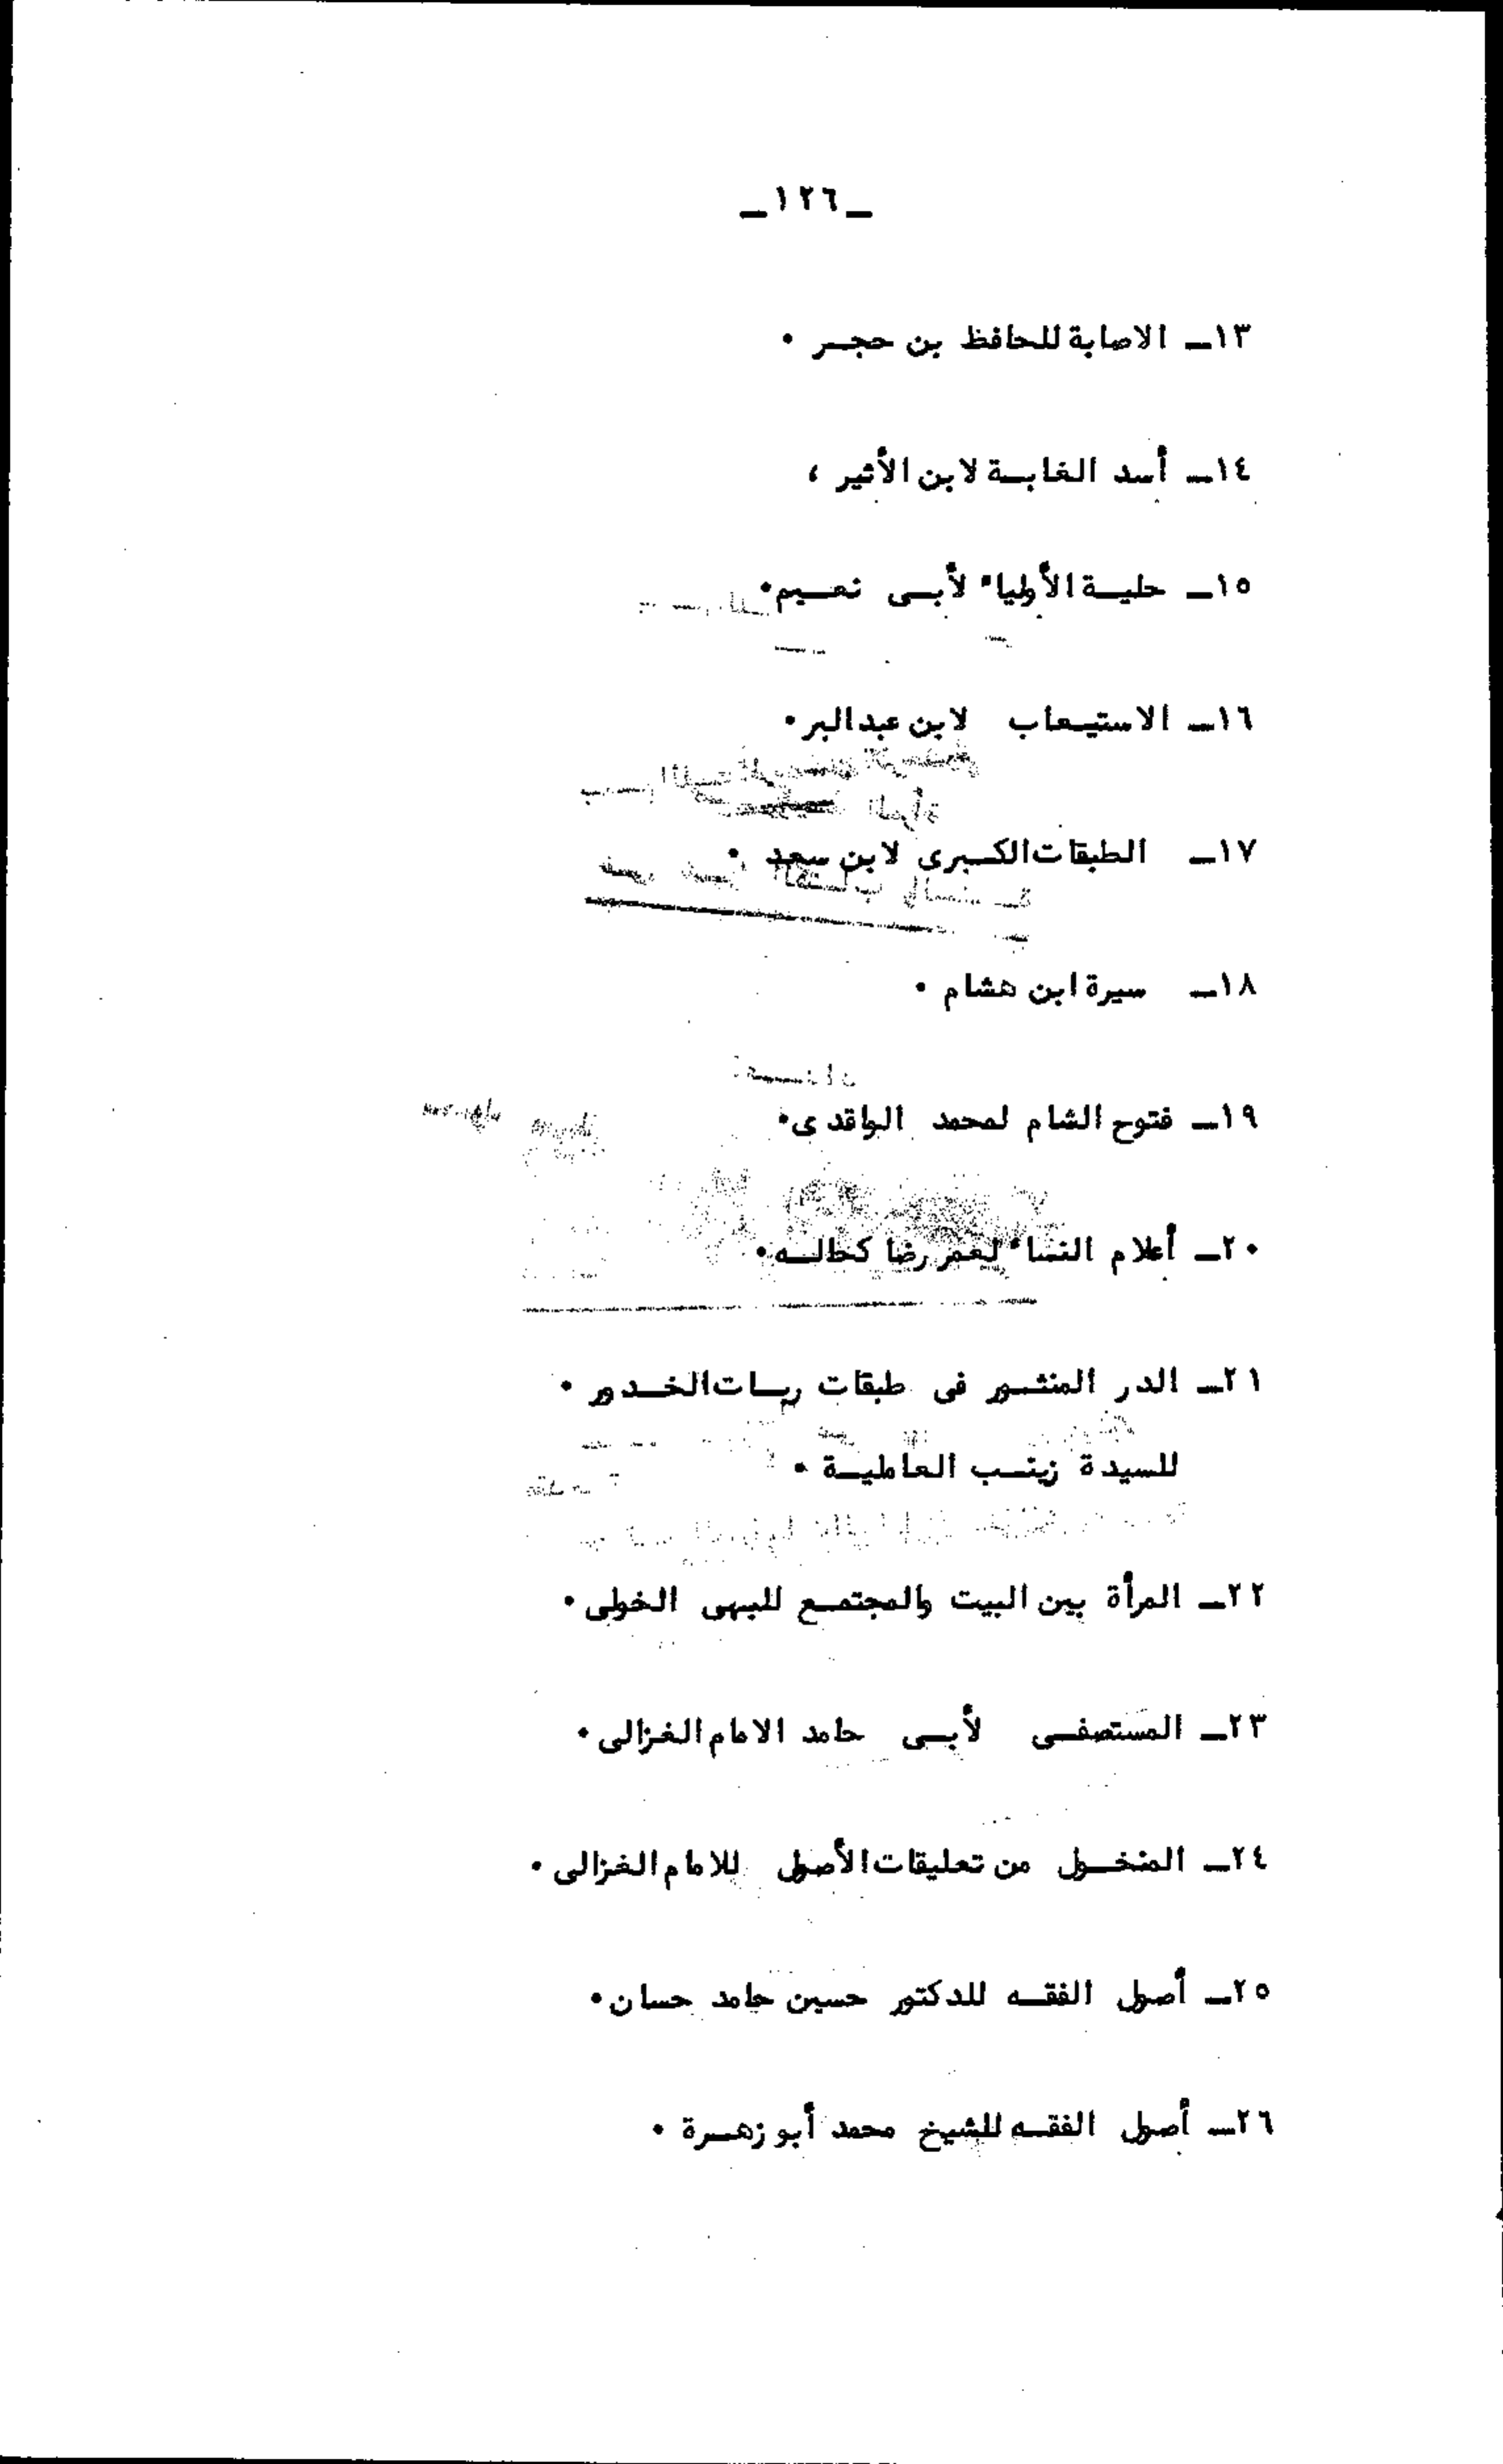 ـ١٢٦ـ
١٣ـ الاصابة للحافظ بن حجـر ٠
١٤ـ أسد الغابـة لابن الأثير ،
١٥ـ حليـة الأولياء لأبـى نعـيم٠
١٦ـ الاستيـعاب لابن عبدالبر٠
١٧ـ الطبقات الكـبرى لابن سعد ٠
١٨ـ سيرة ابن هشام ٠
١٩ـ فتوح الشام لمحمد الواقدى٠
٢٠ـ أعلام النساء لعمر رضا كحالـه٠
٢١ـ الدر المنثـور فى طبقات ربـات الخـدور ٠
للسيدة زينـب العاملیـة ٠
٢٢ـ المرأة بين البيت والمجتمـع للبهى الخولى٠
٢٣ـ المستصفـى لأبـى حامد الامام الغزالى٠
٢٤ـ المنخـول من تعليقات الأصول للامام الغزالى٠
٢٥ـ أصول الفقـه للدكتور حسين حامد حسان٠
٢٦ـ أصول الفقـه للشيخ محمد أبو زهـرة ٠